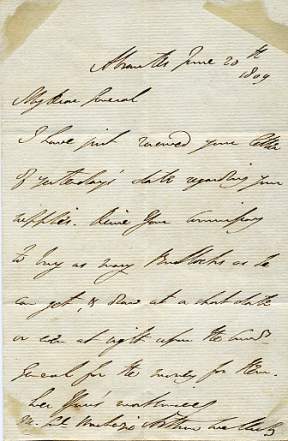 Abrantes June 20th
1809
My dear General
I have just received your letter
of yesterday's date regarding your
supplies. Desire your Commissary
to buy as many Bullocks as he
can get, & draw at a short date
or even at sight upon the
General for the money for them.
Yours
Arthur Wellesley